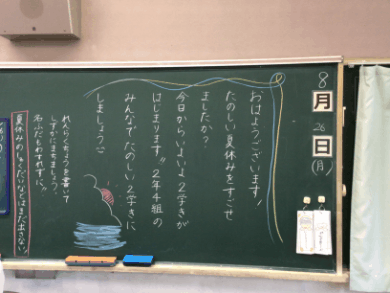 8月26日(月)
おはようございます!
たのしい夏休みをすごせ
ましたか?
今日からいよいよ2学きが
はじまります!!2年4組の
みんなでたのしい2学きに
しましょう
れんらくちょうを書いて
しずかにまちましょう。
名ふだもわすれずに!!
夏休みのしゅくだいなどはまだ出さない。